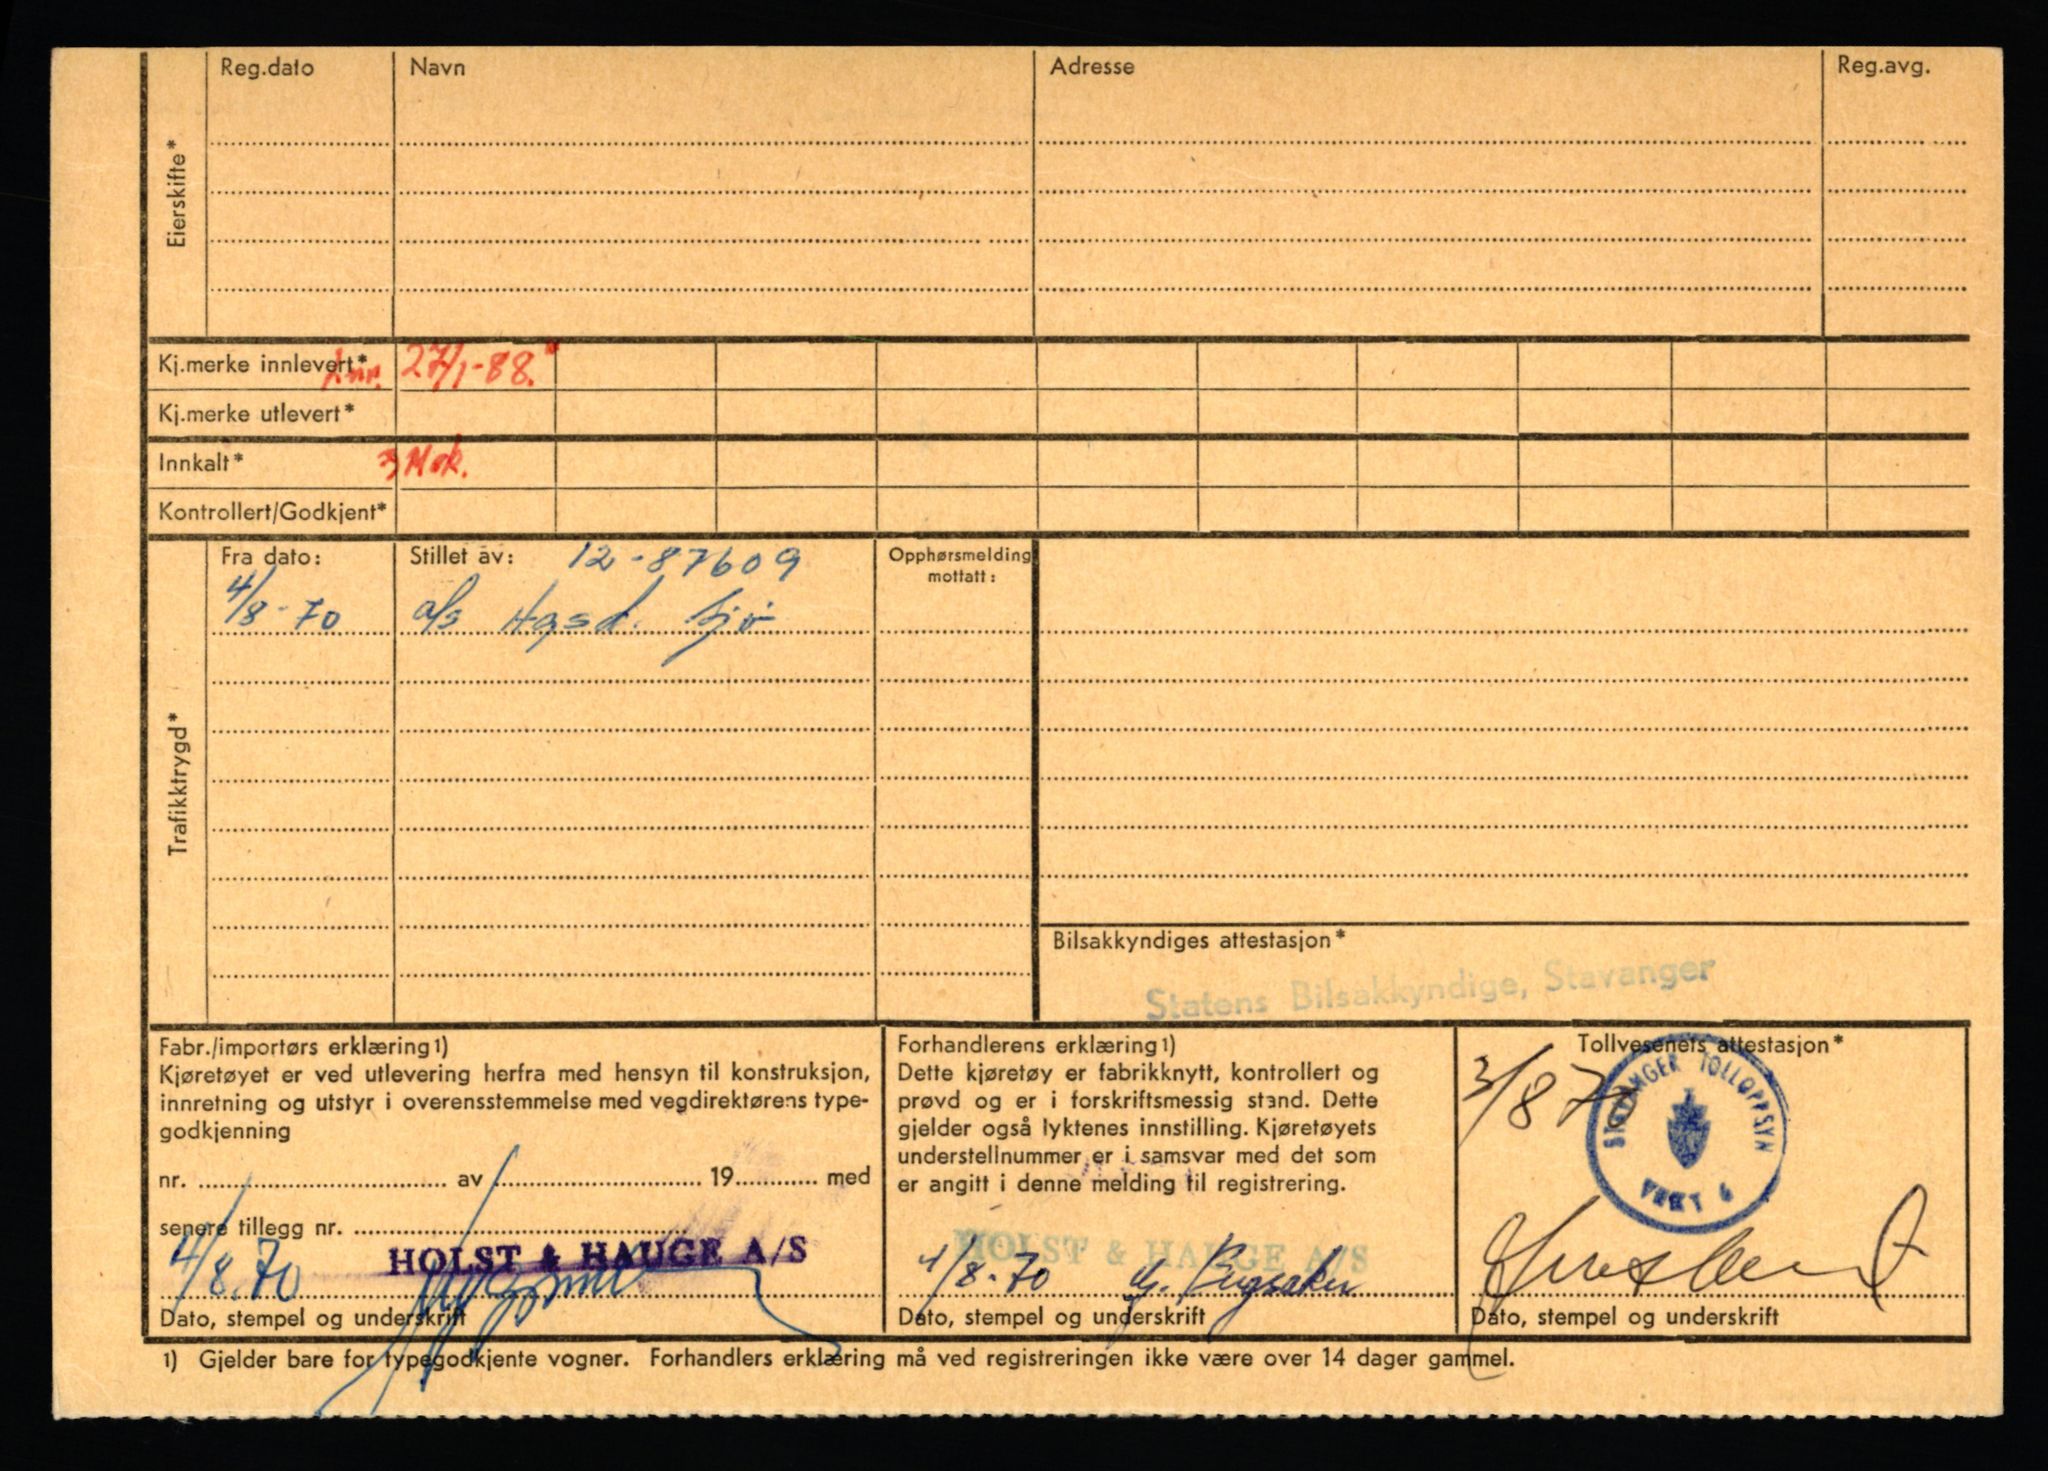 Reg.dato Navn Adresse Reg.avg.
Eierskifte*
Kj.merke innlevert* 27/1-88.
Kj.merke utlevert*
Innkalt* 3 Mok.
Kontrollert/Godkjent*
Fra dato: Stillet av: 12-87609 Opphørsmelding mottatt:
4/8-70 a/s Hgsd. Sjø
Trafikktrygd*
Bilsakkyndiges attestasjon*
Statens Bilsakkyndige, Stavanger
Fabr./importørs erklæring1)
Kjøretøyet er ved utlevering herfra med hensyn til konstruksjon,
innretning og utstyr i overensstemmelse med vegdirektørens type-
godkjenning
nr. av 19 med
senere tillegg nr.
HOLST & HAUGE A/S
4/8.70
Dato, stempel og underskrift
Forhandlerens erklæring1)
Dette kjøretøy er fabrikknytt, kontrollert og
prøvd og er i forskriftsmessig stand. Dette
gjelder også lyktenes innstilling. Kjøretøyets
understellnummer er i samsvar med det som
er angitt i denne melding til registrering.
HOLST & HAUGE A/S
4/8-70
Dato, stempel og underskrift
Tollvesenets attestasjon*
3/8 70
STAVANGER TOLLOPPSYN
VAKT 6
Dato, stempel og underskrift
1) Gjelder bare for typegodkjente vogner. Forhandlers erklæring må ved registreringen ikke være over 14 dager gammel.